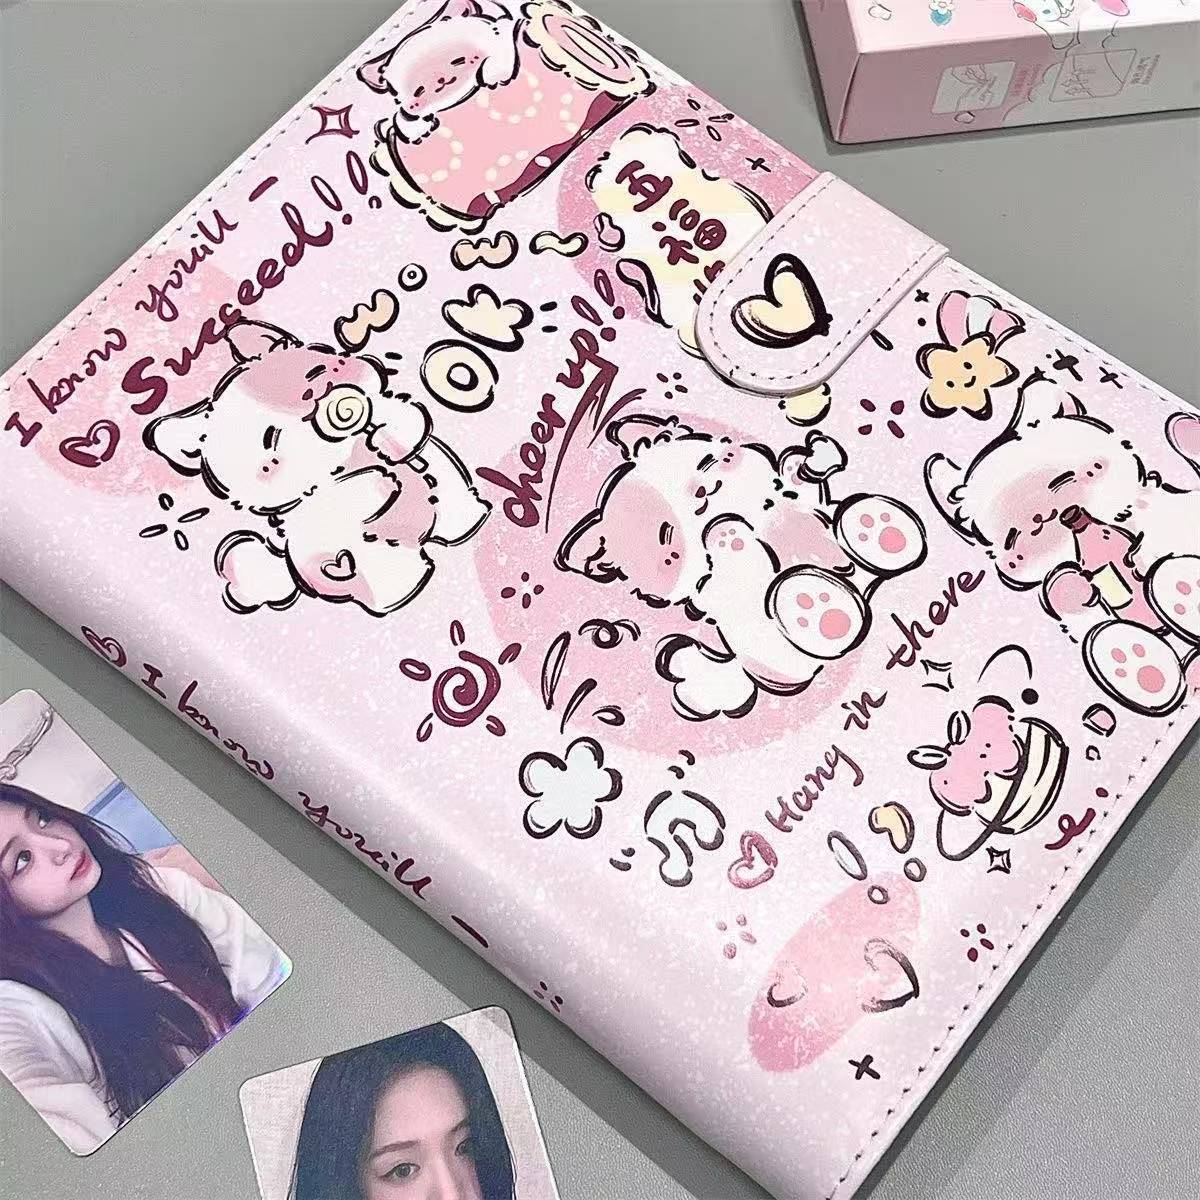 I know youill -
Succeed!!
OK
cheer up!!
五
福
Hang in there
I know youill -